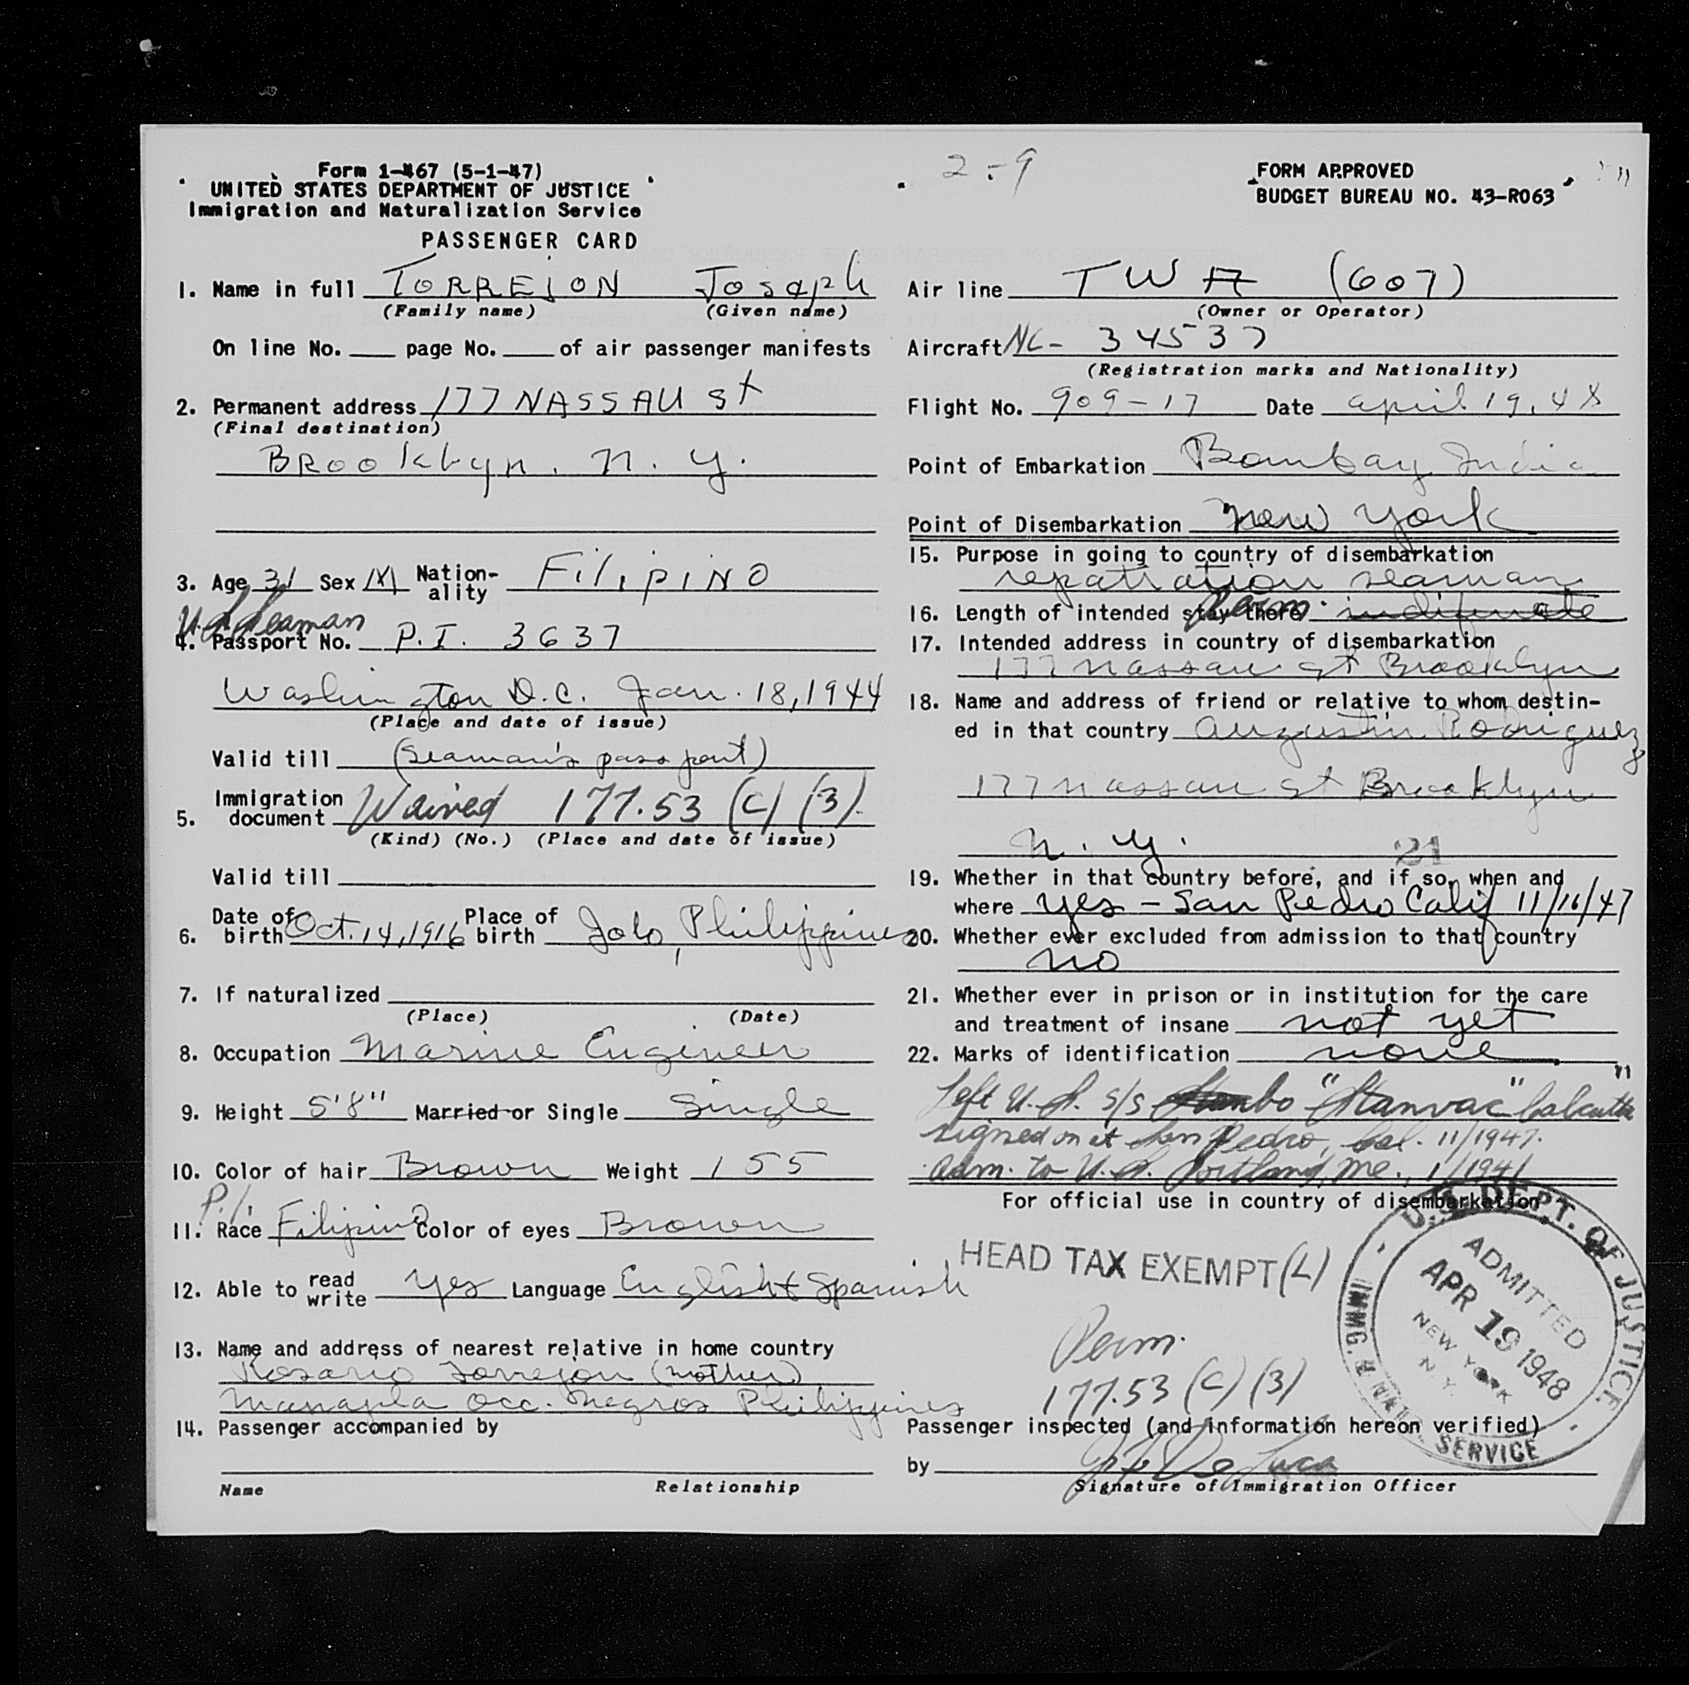 2-9
Form 1-467 (5-1-47)
UNITED STATES DEPARTMENT OF JUSTICE
Immigration and Naturalization Service
PASSENGER CARD
FORM APPROVED
BUDGET BUREAU NO. 43-R063
1. Name in full TORREJON Joseph
(Family name) (Given name)
On line No. ___ page No. ___ of air passenger manifests
2. Permanent address 177 NASSAU St
(Final destination)
Brooklyn. N. Y.
3. Age 31 Sex M Nation-ality FiliPINO
U.S. Seaman
4. Passport No. P.I. 3637
Washington D.C. Jan. 18, 1944
(Place and date of issue)
Valid till (Seaman's passport)
5. Immigration document Waived 177.53 (C) (3).
(Kind) (No.) (Place and date of issue)
Valid till
6. Date of birth Oct. 14, 1916 Place of birth Jolo, Philippines
7. If naturalized
(Place) (Date)
8. Occupation Marine Engineer
9. Height 5'8" Married or Single Single
10. Color of hair Brown Weight 155
P.I.
11. Race Filipino Color of eyes Brown
12. Able to read write yes Language English & Spanish
13. Name and address of nearest relative in home country
Rosario Torrejon (mother)
Manapla Occ. Negros Philippines
14. Passenger accompanied by
Name Relationship
Air line TWA (607)
(Owner or Operator)
Aircraft NC- 34537
(Registration marks and Nationality)
Flight No. 909-17 Date April 19, 48
Point of Embarkation Bombay India
Point of Disembarkation New York
15. Purpose in going to country of disembarkation
repatriation seaman
16. Length of intended stay there Perm. indefinate
17. Intended address in country of disembarkation
177 Nassau St Brooklyn
18. Name and address of friend or relative to whom destin-
ed in that country Augustin Rodriguez
177 Nassau St Brooklyn
N. Y. 21
19. Whether in that country before, and if so, when and
where yes - San Pedro Calif 11/16/47
20. Whether ever excluded from admission to that country
no
21. Whether ever in prison or in institution for the care
and treatment of insane not yet
22. Marks of identification none
Left U.S. S/S "Stanvac" Calcutta
signed on at San Pedro, Cal. 11/1947.
Adm. to U.S. Portland, Me., 1/1941
For official use in country of disembarkation
HEAD TAX EXEMPT (L)
U.S. DEPT. OF JUSTICE
ADMITTED
APR 19 1948
NEW YORK
N.Y.
IMMG. & NATZ. SERVICE
Perm.
177.53 (C) (3)
Passenger inspected (and information hereon verified)
by De Luca
Signature of Immigration Officer